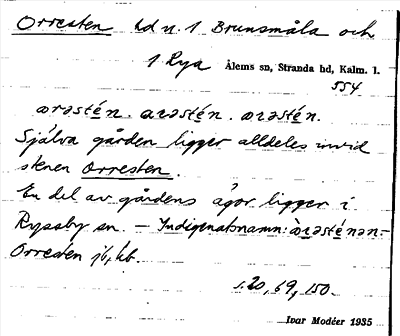 Orresten hd n. 1 Brunsmåla och
1 Rya Ålems sn, Stranda hd, Kalm. l.
554.
ɯrəstén. ɑrəstén. ɯrəstén.
Själva gården ligger alldeles invid
stenen Orresten.
En del av gårdens ägor ligger i
Ryssby sn. – Indigenatsnamn: 
Orrestén jb, kb.
s. 20, 69, 150.
Ivar Modéer 1935